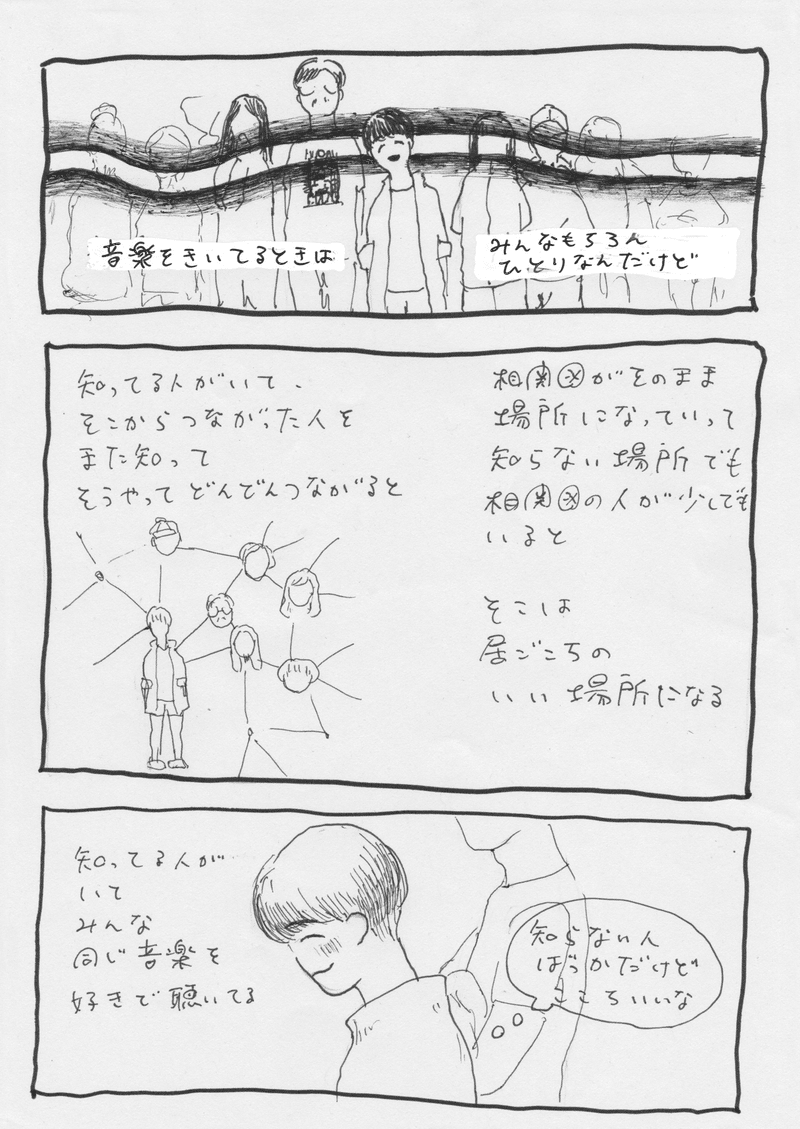 音楽をきいてるときは
みんなもちろん
ひとりなんだけど
知ってる人がいて、
そこからつながった人を
また知って
そうやってどんどんつながると
相関図がそのまま
場所になっていって
知らない場所でも
相関図の人が少しでも
いると
そこは
居ごこちの
いい場所になる
知ってる人が
いて
みんな
同じ音楽を
好きで聴いてる
知らない人
ばっかだけど
ここちいいな